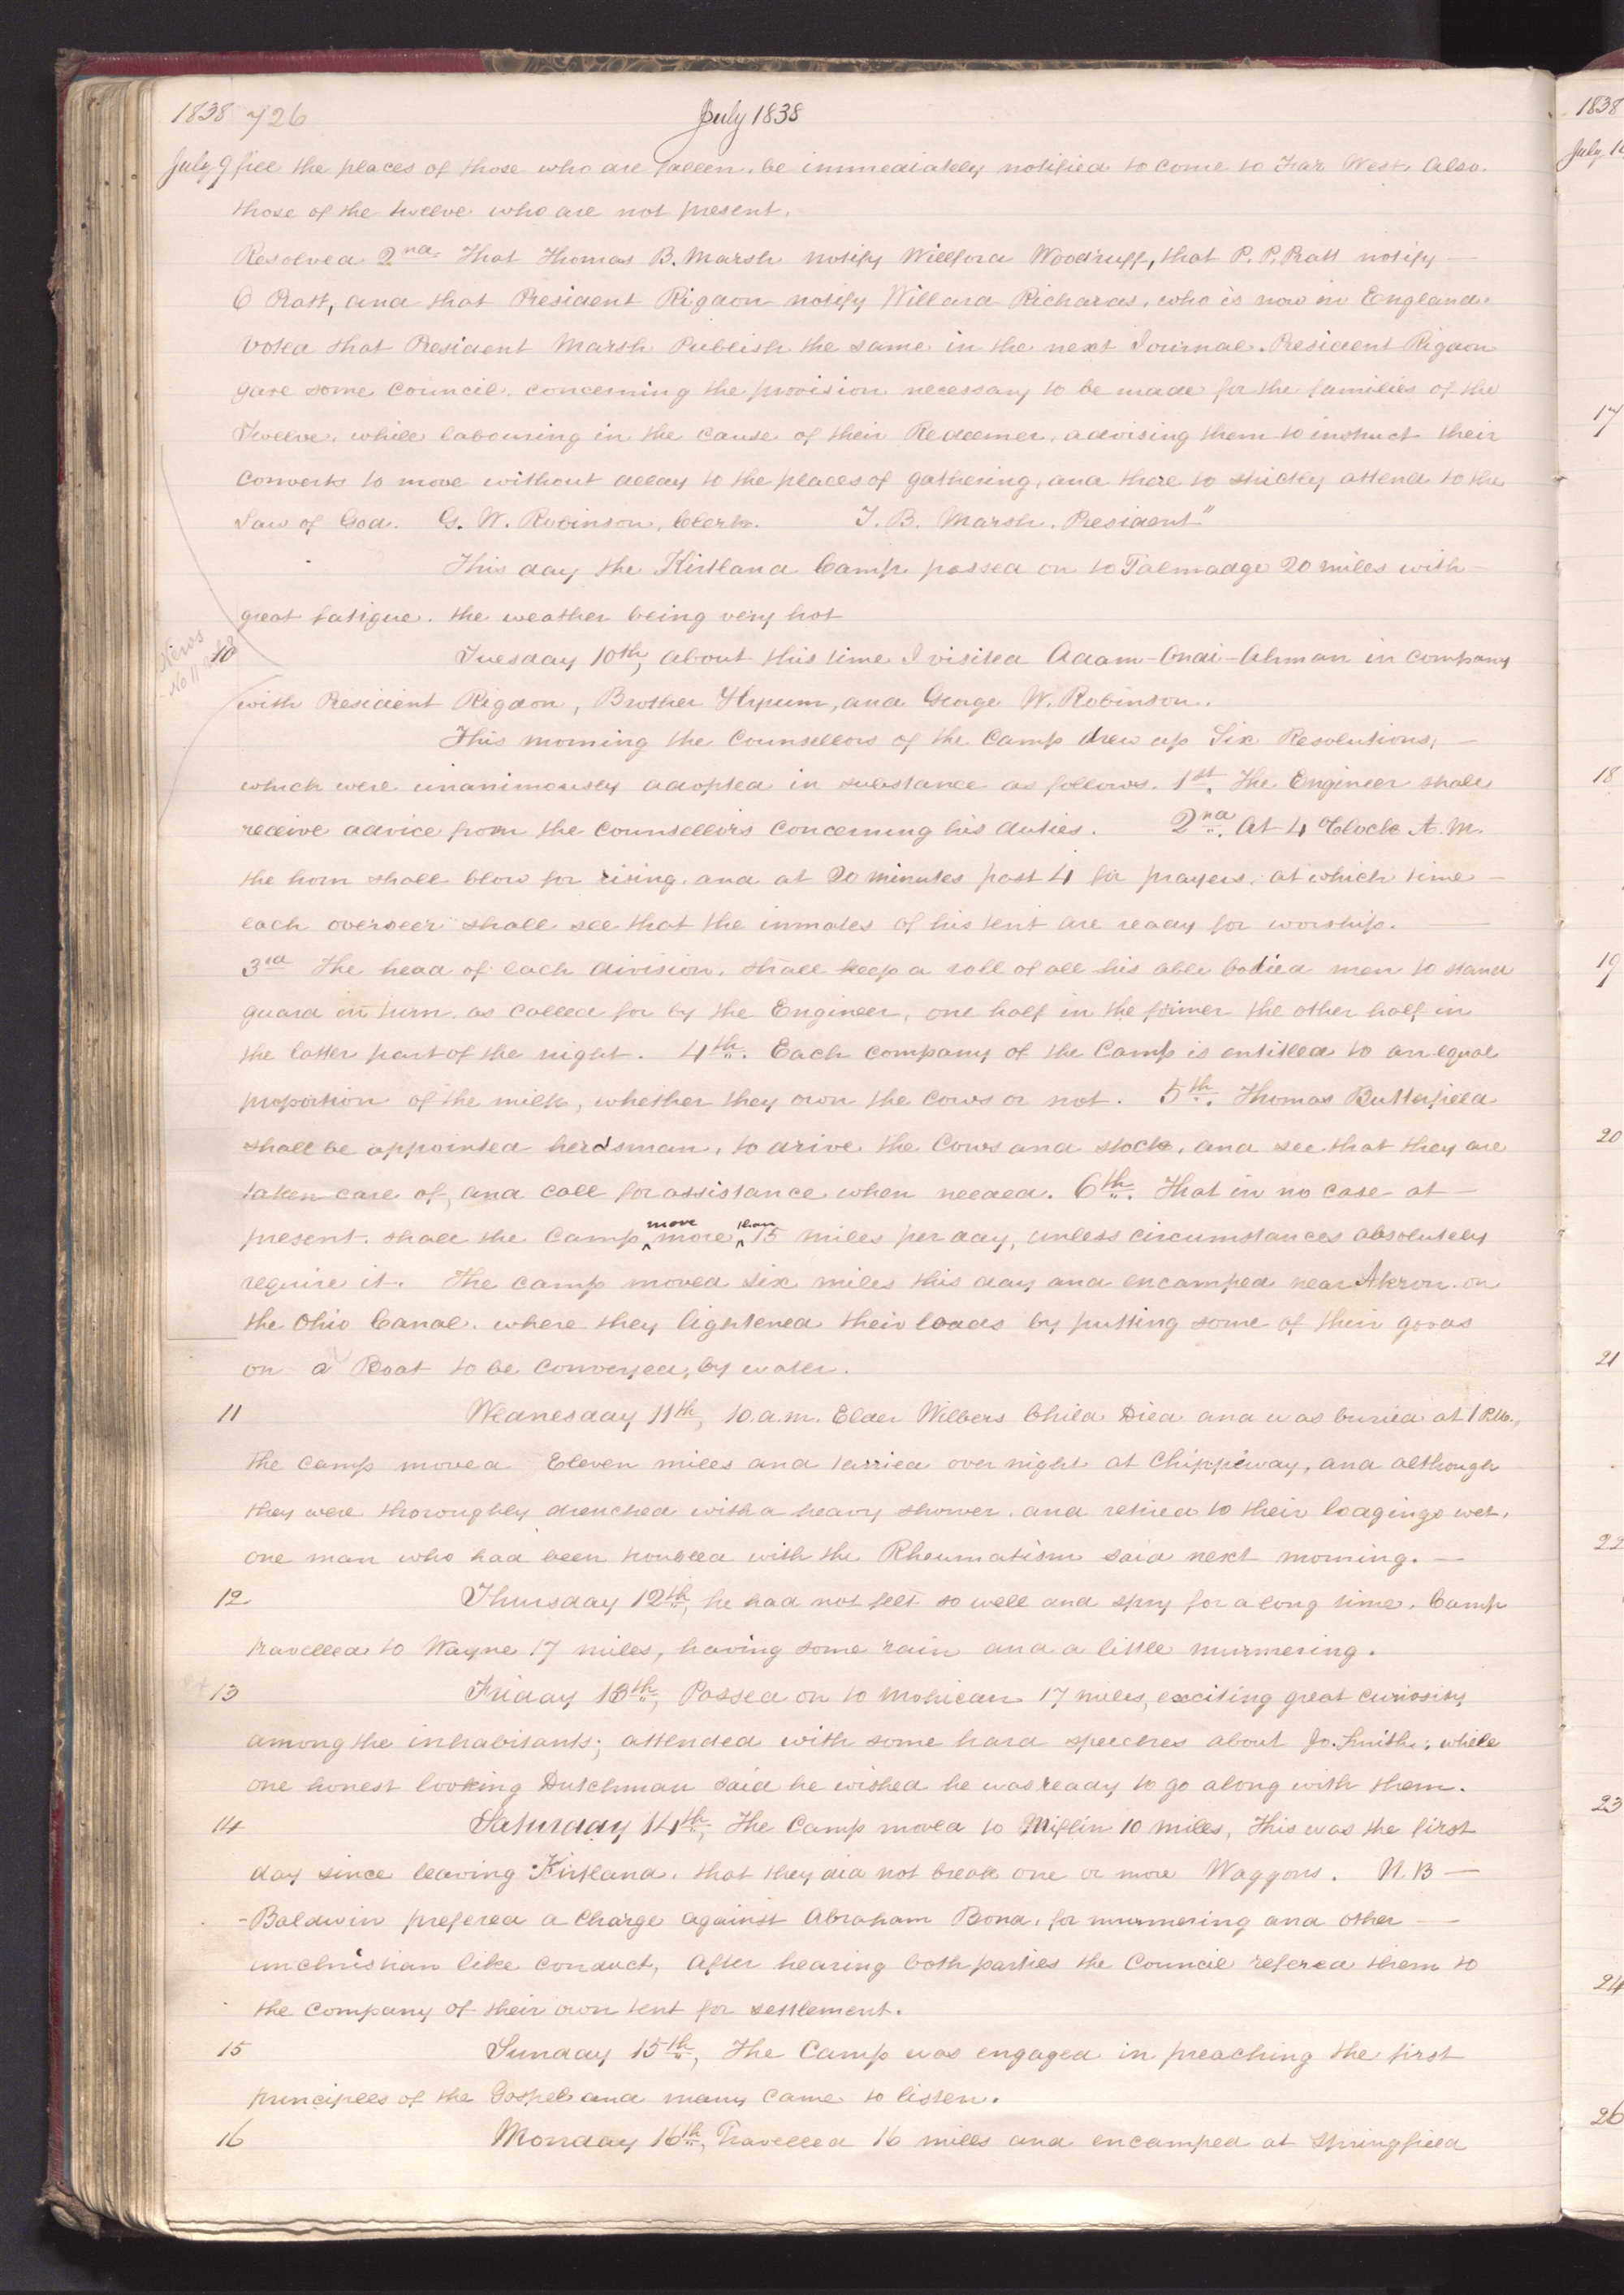 1838 726 July 1838 1838
July 9 fill the places of those who are fallen, be immediately notified to come to Far West, Also. July 16
those of the twelve who are not present.
Resolved 2nd. That Thomas B. Marsh notify Willford Woodruff, that P. P. Pratt notify —
O Pratt, and that President Rigdon notify Willard Richards, who is now in England.
Voted that President Marsh Publish the same in the next Journal. President Rigdon
gave some council, concerning the provision necessary to be made for the families of the
Twelve, while labouring in the cause of their Redeemer, advising them to instruct their 17
converts to move without delay to the places of gathering, and there to strictly attend to the
Law of God. G. W. Robinson, Clerk. T. B. Marsh, President"
This day the Kirtland Camp passed on to Talmadge 20 miles with —
great fatigue, the weather being very hot
News
No 11
10 Tuesday 10th, about this time I visited Adam-Ondi-Ahman in company
with President Rigdon, Brother Hyrum, and George W. Robinson.
This morning the Counsellors of the Camp drew up Six Resolutions, —
which were unanimously adopted in substance as follows. 1st. The Engineer shall 18
receive advice from the counsellors concerning his duties. 2nd. At 4 oClock A. M.
the horn shall blow for rising, and at 20 minutes past 4 for prayers, at which time —
each overseer shall see that the inmates of his tent are ready for worship. —
3rd The head of each division, shall keep a roll of all his able bodied men to stand 19
guard in turn, as called for by the Engineer, one half in the former the other half in
the latter part of the night. 4th. Each company of the Camp is entitled to an equal
proportion of the milk, whether they own the cows or not. 5th. Thomas Butterfield
shall be appointed herdsman, to drive the Cows and stock, and see that they are 20
taken care of, and call for assistance when needed. 6th. That in no case at —
present, shall the Camp move more than 15 miles per day, unless circumstances absolutely
require it. The camp moved six miles this day and encamped near Akron on
the Ohio Canal, where they lightened their loads by putting some of their goods
on a Boat to be conveyed, by water. 21
11 Wednesday 11th, 10. a.m. Elder Wilbers Child Died and was buried at 1 P.M.,
the camp moved Eleven miles and tarried over night at Chippiway, and although
they were thoroughly drenched with a heavy shower, and retired to their lodgings wet,
one man who had been troubled with the Rheumatism said next morning. — 22
12 Thursday 12th, he had not felt so well and spry for a long time. Camp
travelled to Wayne 17 miles, having some rain and a little murmering.
13 Friday 13th, Passed on to Mohican 17 miles, exciting great curiosity
among the inhabitants; attended with some hard speeches about Jo. Smith; while
one honest looking Dutchman said he wished he was ready to go along with them.
14 Saturday 14th, The Camp moved to Miflin 10 miles, This was the first 23
day since leaving Kirtland, that they did not break one or more Waggons. N. B —
-Baldwin prefered a Charge against Abraham Bond, for murmering and other —
unchristian like conduct, After hearing both parties the Council refered them to
the company of their own tent for settlement. 24
15 Sunday 15th, The Camp was engaged in preaching the first
principles of the Gospel and many came to listen.
16 Monday 16th, Travelled 16 miles and encamped at Springfield 26